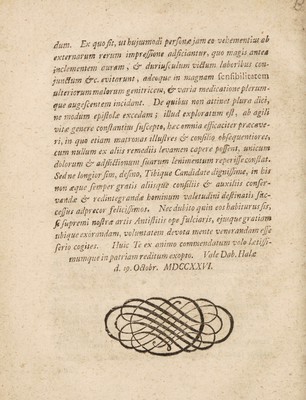 ctum. Ex quo fit, ut hujusmodi personæ jam eo vehementius ab
externarum rerum impressione adficiantur, quo magis antea
inclementem auram, & duriusculum victum laboribus con-
junctum &c. evitarunt, adeoque in magnam sensibilitatem
ulteriorum malorum genitricem, & varia medicatione plerum-
que augescentem incidant. De quibus non attinet plura dici,
ne modum epistolæ excedam; illud exploratum est, ab agili
vitæ genere constantius suscepto, hæc omnia efficaciter præcave-
ri, in quo etiam matronas illustres & consiliis obsequentiores,
cum nullum ex aliis remediis levamen capere possent, unicum
dolorum & adflictionum suarum lenimentum reperisse constat.
Sed ne longior sim, desino, Tibique Candidate dignissime, in his
non æque semper gratis aliisque consiliis & auxiliis conser-
vandæ & redintegrandæ hominum valetudini destinatis suc-
cessus adprecor felicissimos. Nec dubito quin eos habiturus sis,
si supremi nostræ artis Antistitis ope fulciaris, ejusque gratiam
ubique exorandam, voluntatem devota mente venerandam esse
serio cogites. Huic Te ex animo commendatum volo lætissi-
mumque in patriam reditum exopto. Vale Dab. Halæ
d. 19. Octobr. MDCCXXVI.